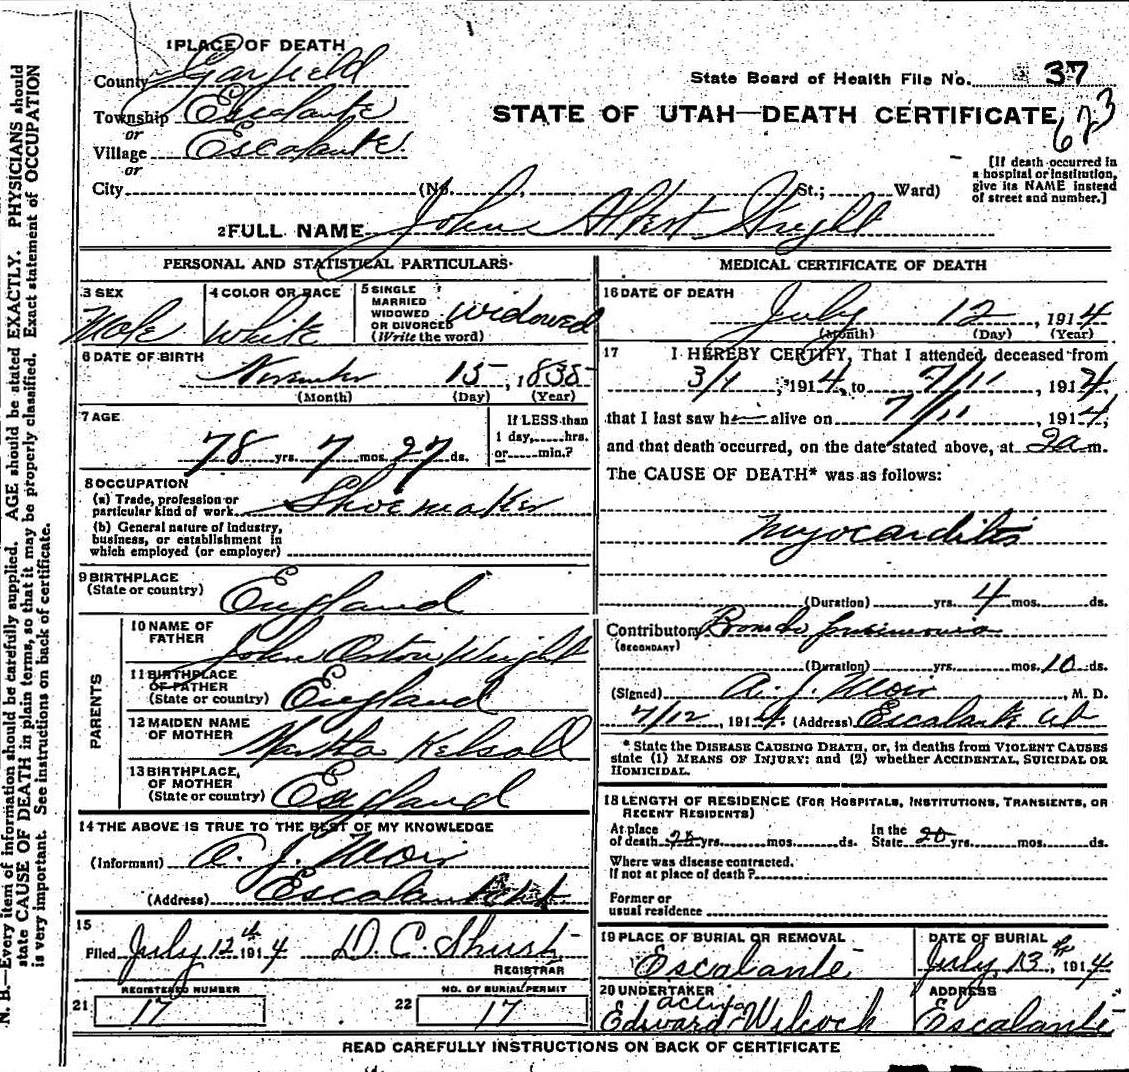 1 PLACE OF DEATH
County Garfield
Township Escalante
or
Village Escalante
or
City (No. St.; Ward)
State Board of Health File No. 37
STATE OF UTAH—DEATH CERTIFICATE
623
[If death occurred in
a hospital or institution,
give its NAME instead
of street and number.]
2 FULL NAME John Albert Wright
PERSONAL AND STATISTICAL PARTICULARS
3 SEX
Male
4 COLOR OR RACE
White
5 SINGLE
MARRIED
WIDOWED
OR DIVORCED
(Write the word)
Widowed
6 DATE OF BIRTH
November 15, 1835
(Month) (Day) (Year)
7 AGE
78 yrs. 7 mos. 27 ds.
If LESS than
1 day,.....hrs.
or.....min.?
8 OCCUPATION
(a) Trade, profession or
particular kind of work Shoemaker
(b) General nature of industry,
business, or establishment in
which employed (or employer)
9 BIRTHPLACE
(State or country) England
PARENTS
10 NAME OF
FATHER John Wright
11 BIRTHPLACE
OF FATHER
(State or country) England
12 MAIDEN NAME
OF MOTHER Martha Kelsall
13 BIRTHPLACE,
OF MOTHER
(State or country) England
14 THE ABOVE IS TRUE TO THE BEST OF MY KNOWLEDGE
(Informant) A. J. Moir
(Address) Escalante
15
Filed July 12th 1914 D. C. Shurtz
REGISTRAR
21 REGISTERED NUMBER
17
22 NO. OF BURIAL PERMIT
17
MEDICAL CERTIFICATE OF DEATH
16 DATE OF DEATH
July 12, 1914
(Month) (Day) (Year)
17 I HEREBY CERTIFY, That I attended deceased from
3/1, 1914, to 7/11, 1914
that I last saw h alive on 7/11, 1914,
and that death occurred, on the date stated above, at 2 a m.
The CAUSE OF DEATH* was as follows:
Myocarditis
(Duration) yrs. 4 mos. ds.
Contributory Broncho pneumonia
(SECONDARY)
(Duration) yrs. mos. 10 ds.
(Signed) A. J. Moir, M. D.
7/12, 1914. (Address) Escalante Ut
* State the DISEASE CAUSING DEATH, or, in deaths from VIOLENT CAUSES
state (1) MEANS OF INJURY; and (2) whether ACCIDENTAL, SUICIDAL OR
HOMICIDAL.
18 LENGTH OF RESIDENCE (FOR HOSPITALS, INSTITUTIONS, TRANSIENTS, OR
RECENT RESIDENTS)
At place
of death yrs. mos. ds.
In the
State 20 yrs. mos. ds.
Where was disease contracted.
If not at place of death?
Former or
usual residence
19 PLACE OF BURIAL OR REMOVAL
Escalante
DATE OF BURIAL
July 13th, 1914
20 UNDERTAKER
acting
Edward Wilcock
ADDRESS
Escalante
READ CAREFULLY INSTRUCTIONS ON BACK OF CERTIFICATE
N. B.—Every item of information should be carefully supplied. AGE should be stated EXACTLY. PHYSICIANS should
state CAUSE OF DEATH in plain terms, so that it may be properly classified. Exact statement of OCCUPATION
is very important. See instructions on back of certificate.